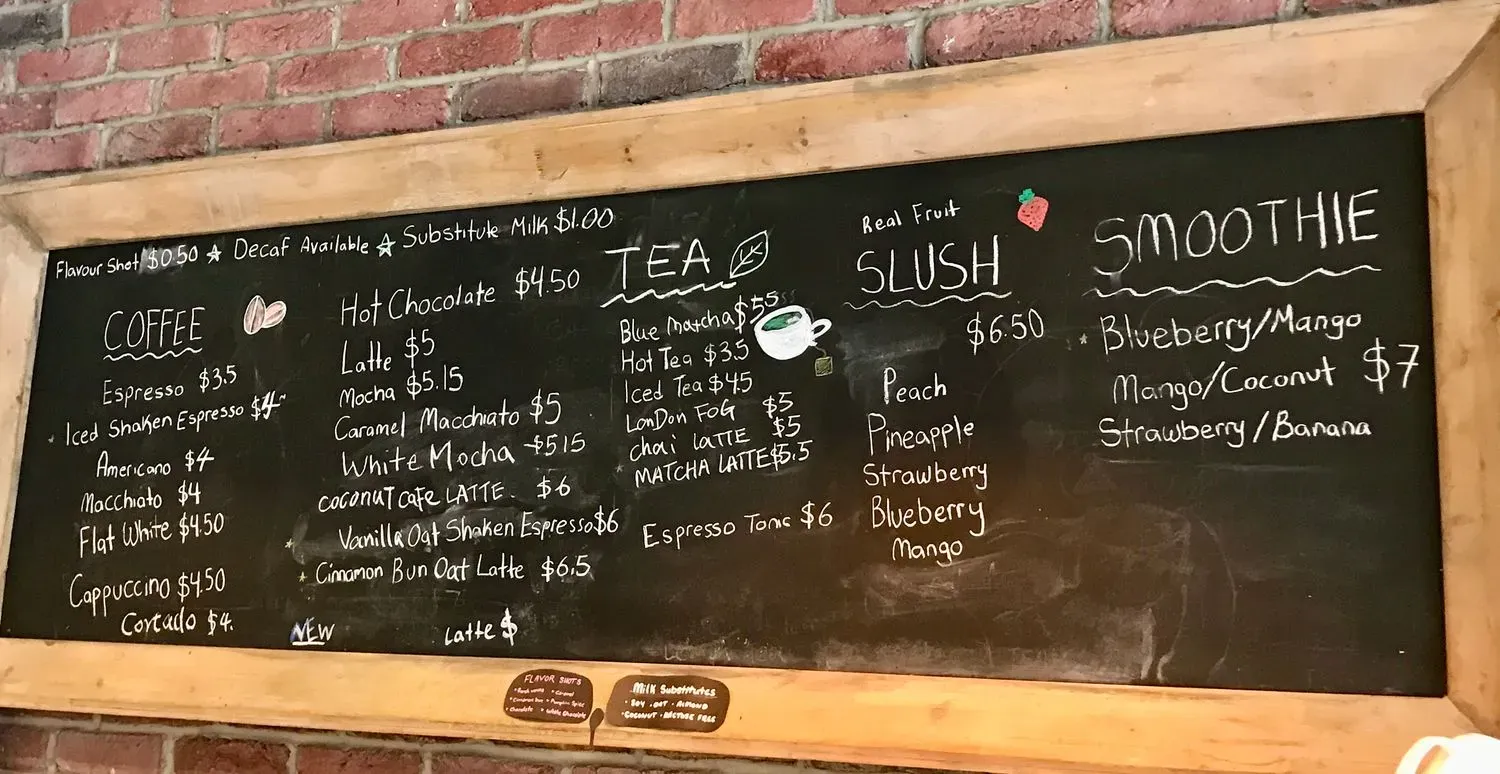 Flavour Shot $0.50 ☆ Decaf Available ☆ Substitute Milk $1.00
COFFEE
Espresso $3.5
Iced Shaken Espresso $4
Americano $4
Macchiato $4
Flat White $4.50
Cappuccino $4.50
Cortado $4.
Hot Chocolate $4.50
Latte $5
Mocha $5.15
Caramel Macchiato $5
White Mocha $5.15
COCONUT CAFE LATTE. $6
Vanilla Oat Shaken Espresso $6
Cinnamon Bun Oat Latte $6.5
NEW Latte $
TEA
Blue Matcha $5.5
Hot Tea $3.5
Iced Tea $4.5
LonDon FOG $5
chai LATTE $5
MATCHA LATTE $5.5
Espresso Tonic $6
Real Fruit
SLUSH
$6.50
Peach
Pineapple
Strawberry
Blueberry
Mango
SMOOTHIE
Blueberry/Mango
Mango/Coconut $7
Strawberry/Banana
FLAVOR SHOTS
• Caramel
• Cinnamon bun • Pumpkin Spice
• Chocolate • White Chocolate
Milk Substitutes
• SOY • OAT • ALMOND
• COCONUT • LACTOSE FREE